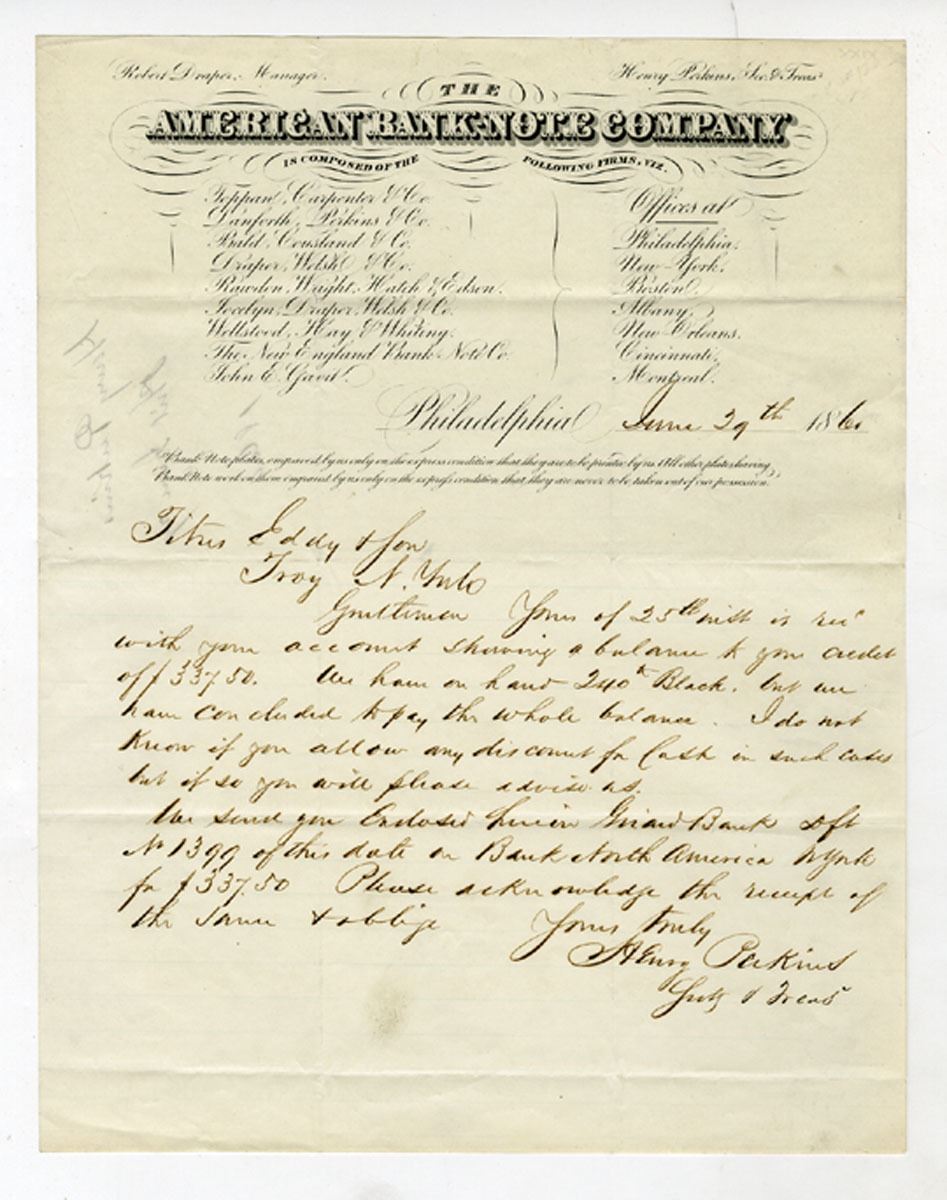 Robert Draper, Manager. Henry Perkins, Sec. & Treas.
THE
AMERICAN BANK-NOTE COMPANY
IS COMPOSED OF THE FOLLOWING FIRMS, VIZ.
Toppan, Carpenter & Co.
Danforth, Perkins & Co.
Bald, Cousland & Co.
Draper, Welsh & Co.
Rawdon, Wright, Hatch & Edson.
Jocelyn, Draper, Welsh & Co.
Wellstood, Hay & Whiting.
The New England Bank Note Co.
John E. Gavit.
Offices at
Philadelphia.
New-York.
Boston.
Albany.
New Orleans.
Cincinnati.
Montreal.
Philadelphia June 29th 186
Bank Note plates, engraved by us only on the express condition that they are to be printed by us. All other plates having
Bank Note work on them engraved by us only on the express condition that they are never to be taken out of our possession.
Titus Eddy & Son
Troy N. York
Gentlemen Yours of 25th inst is rec'
with your account showing a balance to your credit
of $337.50. We have on hand 240 Black. but we
have concluded to pay the whole balance. I do not
know if you allow any discount for Cash in such cases
but if so you will please advise us.
We send you Enclosed herein Girard Bank Dft
No 1399 of this date on Bank North America NYork
for $337.50 Please acknowledge the receipt of
the same & oblige Yours truly
Henry Perkins
Secty & Treas